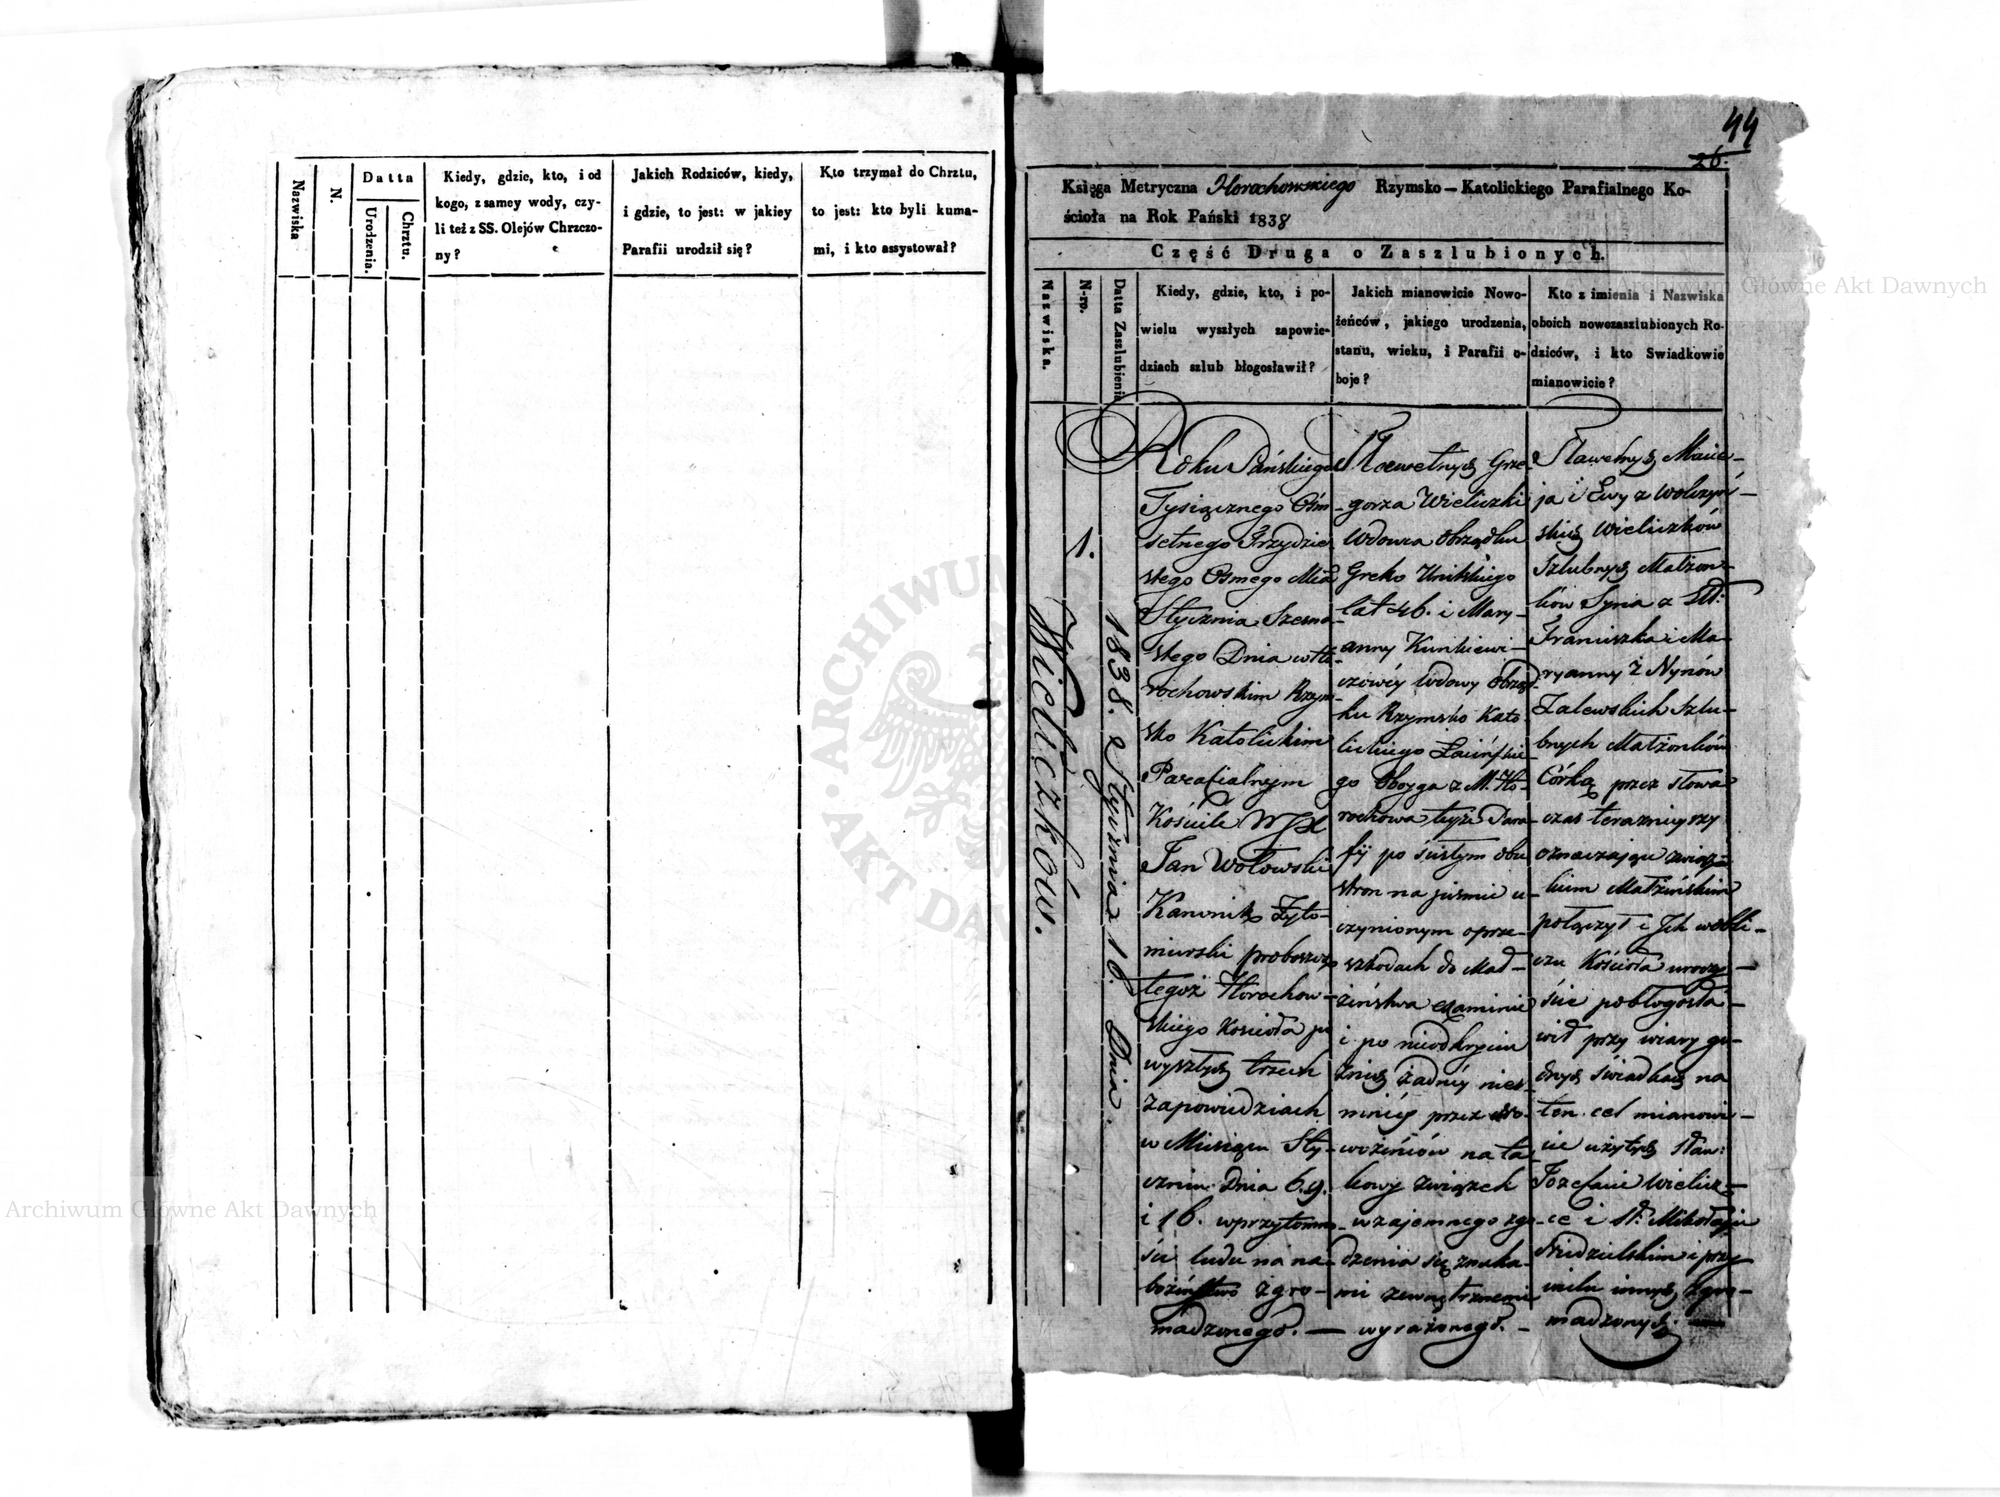 Nazwiska
N.
Datta
Urodzenia.
Chrztu.
Kiedy, gdzie, kto, i od
kogo, z samey wody, czy-
li też z SS. Olejów Chrzczo-
ny?
Jakich Rodziców, kiedy,
i gdzie, to jest: w jakiey
Parafii urodził się?
Kto trzymał do Chrztu,
to jest: kto byli kuma-
mi, i kto assystował?
44
26.
Księga Metryczna Horochowskiego Rzymsko-Katolickiego Parafialnego Ko-
ścioła na Rok Pański 1838
Część Druga o Zaszlubionych.
Nazwiska.
N-ro.
Datta Zaszlubienia
Kiedy, gdzie, kto, i po-
wielu wyszłych zapowie-
dziach szlub błogosławił?
Jakich mianowicie Nowo-
żeńców, jakiego urodzenia,
stanu, wieku, i Parafii o-
boje?
Kto z imienia i Nazwiska
oboich nowozaszlubionych Ro-
dziców, i kto Swiadkowie
mianowicie?
Wieliczków.
1.
1838. Stycznia 16. Dnia
Roku Pańskiego
Tysiącznego Ośm
setnego Trzydzie
stego Osmego Mca
Stycznia Szesna-
stego Dnia w Ho-
rochowskim Rzym-
sko Katolickim
Parafialnym
Kościele WJX
Jan Wołowski
Kanonik Żyto-
mierski proboszcz
tegoż Horochow-
skiego Kościoła po
wyszłych trzech
zapowiedziach
w Miesiącu Sty-
czniu Dnia 6. 9.
i 16. w przytomno-
ści ludu na na-
bożeństwo zgro-
madzonego. —
Sławetnych Grze-
gorza Wieliczki
Wdowca Obrządku
Greko Unitskiego
lat 46. i Mary-
anny Kunkiewi-
czowéy Wdowy Obrząd-
ku Rzymsko Kato-
lickiego Łacińskie-
go Oboyga z M. Ho-
rochowa teyże Para
fij po ścisłym obu
stron na piśmie u-
czynionym o prze-
szkodach do Mał-
żeństwa examinie
i po nieodkryciu
żadnéy
przez No-
wożeńców na ta-
kowy związek
wzajemnego zgo-
dzenia się znaka-
mi zewnętrznemi
wyrażonego. -
Sławetnych Macie-
ja i Ewy z Wolczyń-
skich Wieliczków
Szlubnych Małżon-
ków Syna z Sł:
Franciszka i Ma-
ryanny z Nynów
Zalewskich Szlu-
bnych Małżonków
Córką przez słowa
czas teraznieyszy
oznaczające związ
kiem Małżeńskim
połączył i Ich w obli-
czu Kościoła uroczy-
ście pobłogosła-
wił przy wiary go-
dnych świadkach na
ten cel mianowi-
cie użytych Sław:
Jozefacie Wielicz-
ce i Sł: Mikołaju
Niedzielskim i przy
wielu innych zgro-
madzonych. —
Archiwum Główne Akt Dawnych
Archiwum Główne Akt Dawnych
ARCHIWUM
AKT DAW